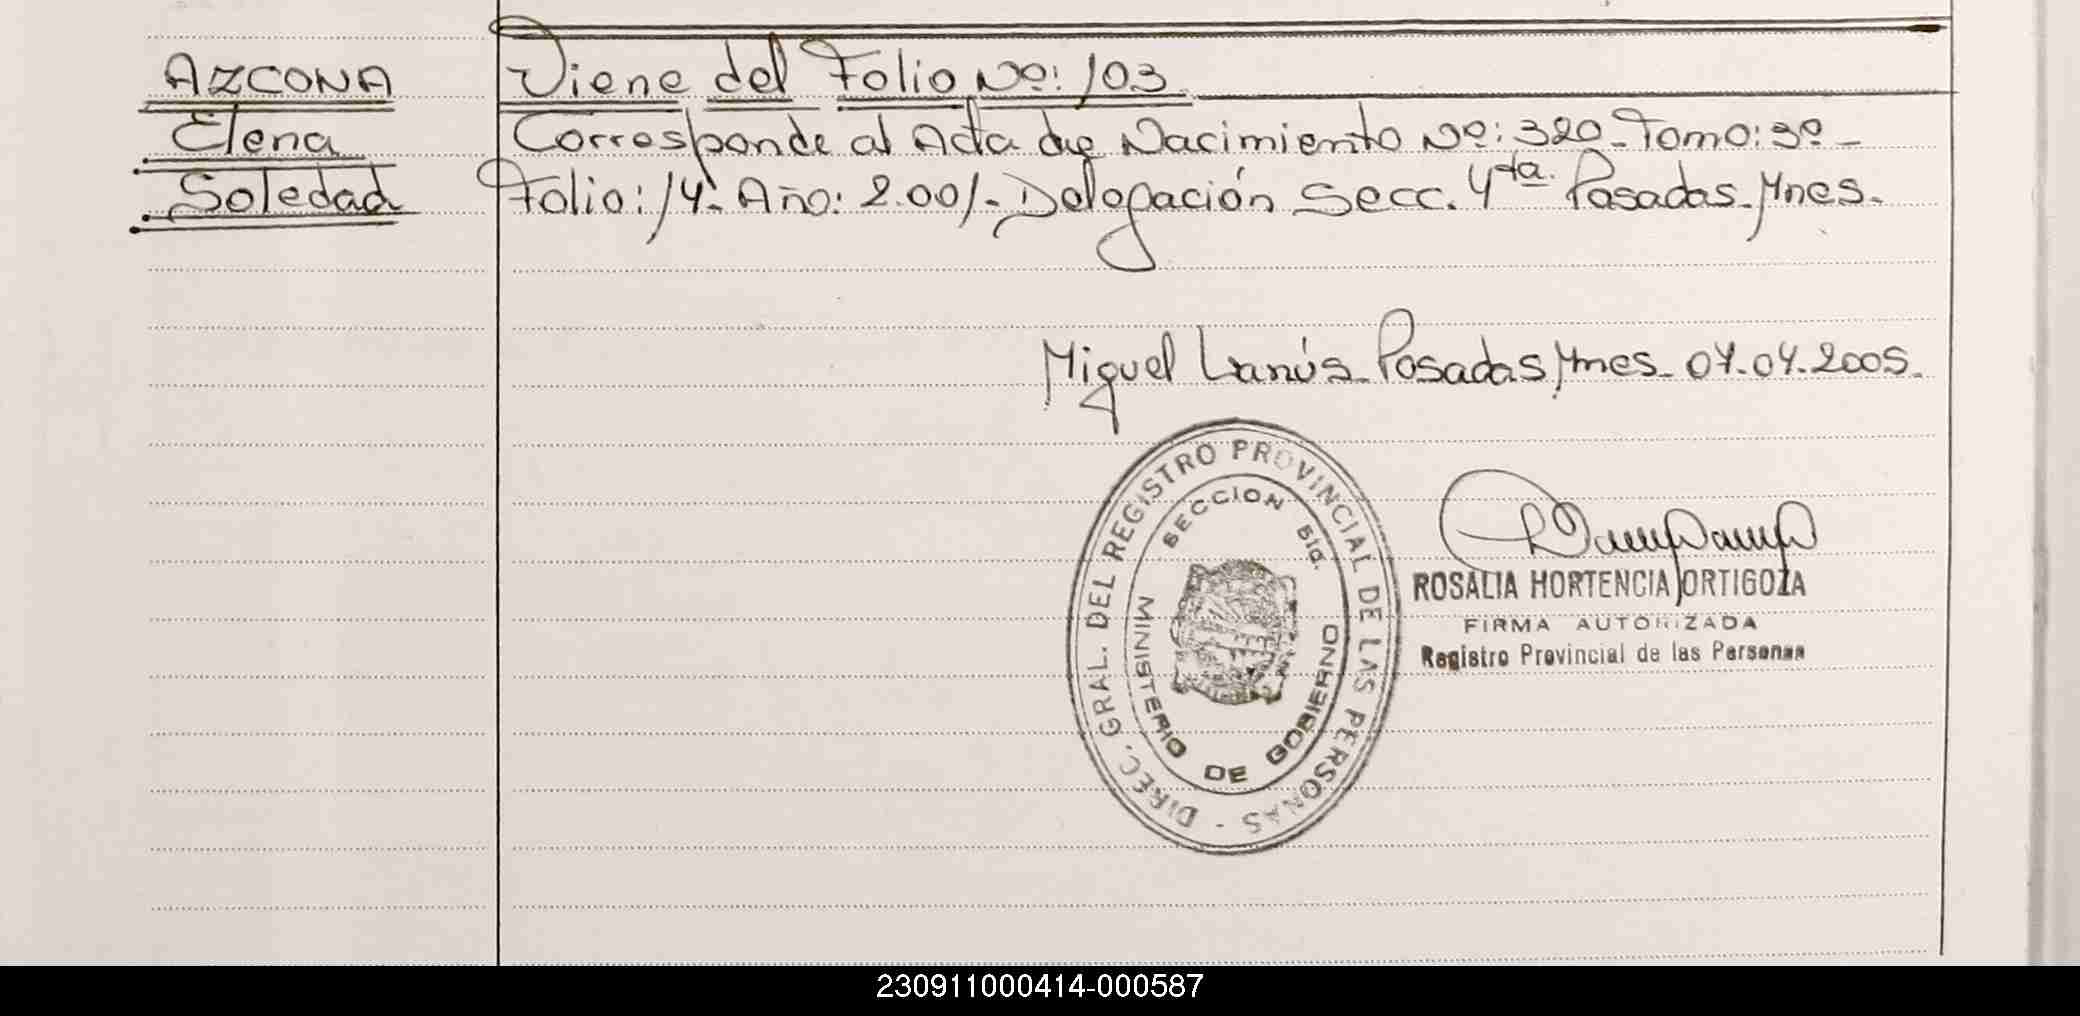 AZCONA
Elena
Soledad
Viene del Folio Nº: 103
Corresponde al Acta de Nacimiento Nº: 320 - Tomo: 3º -
Folio: 14. Año: 2.001 - Delegación Secc. 4ta. Posadas. Mnes.
Miguel Lanús - Posadas Mnes - 07.04.2005.
DIREC. GRAL. DEL REGISTRO PROVINCIAL DE LAS PERSONAS -
SECCION
MINISTERIO DE GOBIERNO
ROSALIA HORTENCIA ORTIGOZA
FIRMA AUTORIZADA
Registro Provincial de las Personas
230911000414-000587